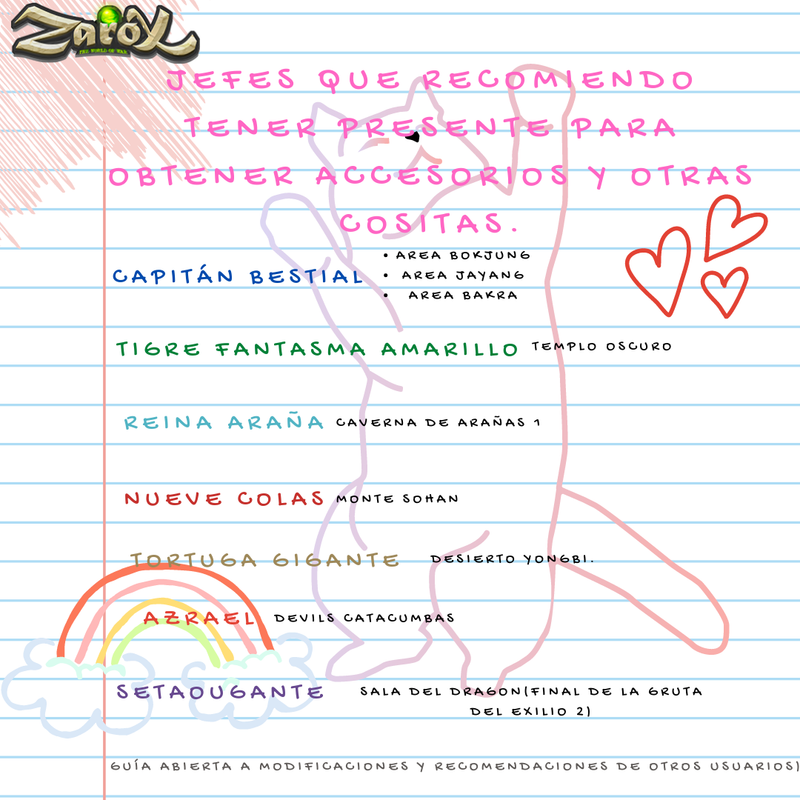 Zarox
PRO WORLD OF WAR
JEFES QUE RECOMIENDO
TENER PRESENTE PARA
OBTENER ACCESORIOS Y OTRAS
COSITAS.
CAPITÁN BESTIAL
• AREA BOKJUNG
• AREA JAYANG
• AREA BAKRA
TIGRE FANTASMA AMARILLO TEMPLO OSCURO
REINA ARAÑA CAVERNA DE ARAÑAS 1
NUEVE COLAS MONTE SOHAN
TORTUGA GIGANTE DESIERTO YONGBI.
AZRAEL DEVILS CATACUMBAS
SETAOUGANTE SALA DEL DRAGON(FINAL DE LA GRUTA
DEL EXILIO 2)
GUÍA ABIERTA A MODIFICACIONES Y RECOMENDACIONES DE OTROS USUARIOS)